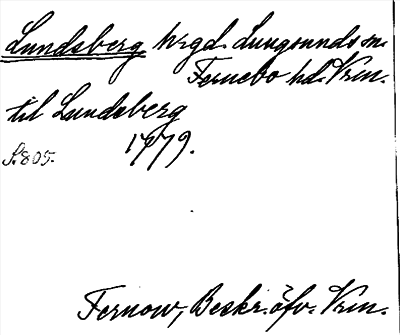 Lundsberg hrgd. Lungsunds sn.
Fernebo hd. Vrm.
til Lundsberg
1779.
S. 805.
Fernow, Beskr. öfv. Vrm.